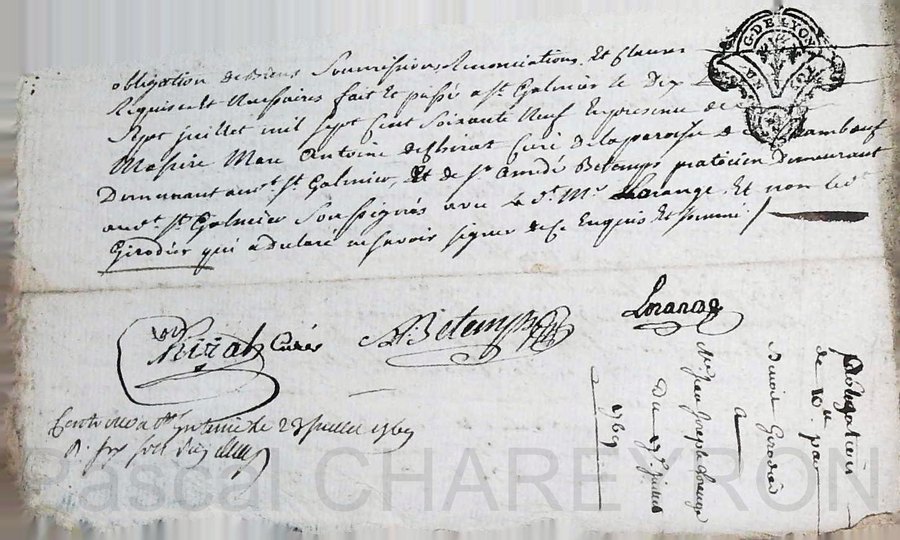 obligation de Biens Soumissions, Renonciations, Et Clauses
Requises et necessaires fait Et passé a St Galmier le Dix
Sept juillet mil sept Cent Soixante Neuf En presence de
Messire Marc Antoine de Chirat Curé De la paroisse de Chambœuf
Demeurant aud.t St Galmier, Et de Sr Amdé Betemps praticien Demeurant
aud.t St Galmier Soussignés avec le d.t Mr Lorange. Et non led.t
Girodier qui a declaré ne scavoir signer de Ce Enquis Et sommé
Chirat Curé
A. Betemps
Lorange
a St le 23 juillet 1769
R.
obligation
de
par
Benoit Girodier
a
Mre Jean Joseph Lorange
Du 17e juillet
1769
G. DE LYON
Pascal CHAREYRON